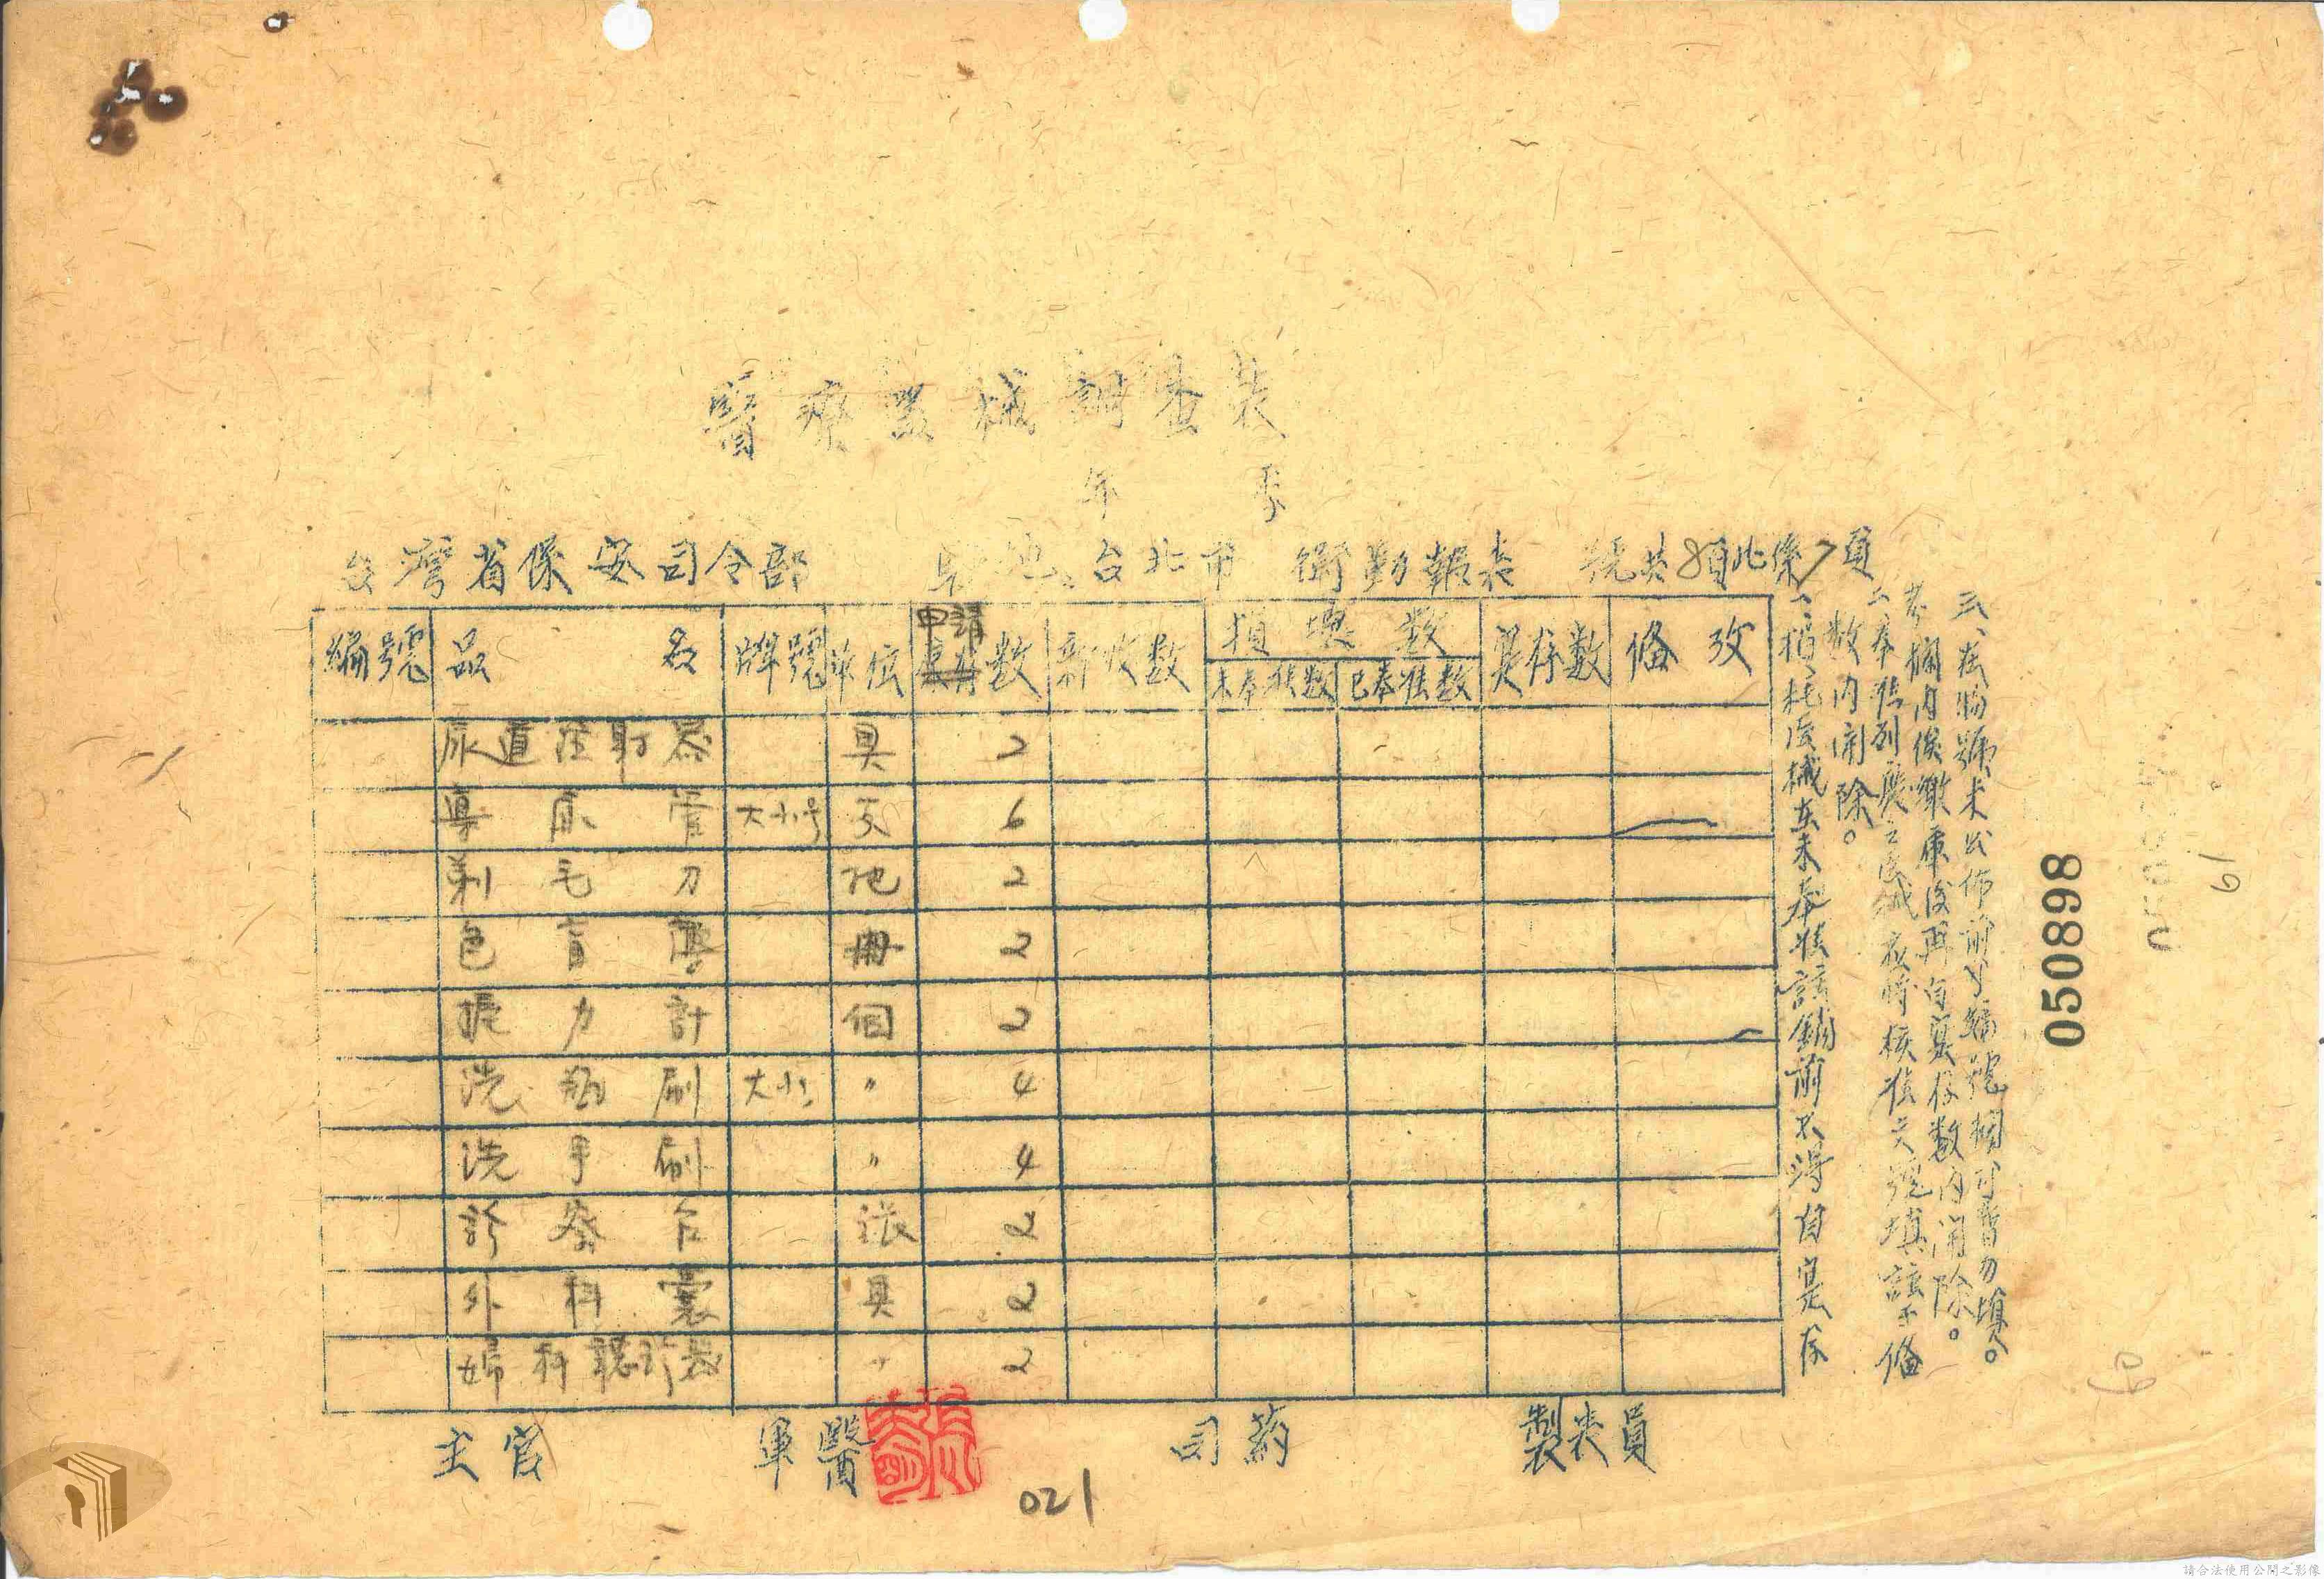 醫療器械調查表
年 季
台灣省保安司令部 駐地 台北市 衛勤報表 號共8頁此係7頁
編號 品名 牌號 單位 申請數 新收數 損壞數 未奉准數 已奉准數 實存數 備攷
尿道注射器 具 2
導尿管 大小号 支 6
剃毛刀 把 2
色盲 冊 2
握力計 個 2
洗瓶刷 大小 〃 4
洗手刷 〃 4
診察台 張 2
外科囊 具 2
婦科 〃 2
主官 軍醫 司葯 製表員
一、損耗器械在未奉准註銷前不得自實存
數內開除。
二、奉准列廢之器械應將核准文號填註於備
攷欄內俟繳庫後再自實存數內開除。
三、在物號未公佈前其編號欄可暫勿填。
050898
19
021
請合法使用公開之影像